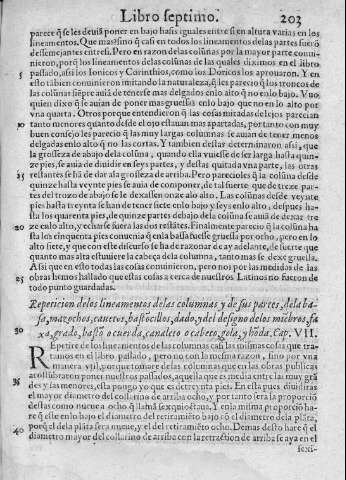 Libro septimo. 203
parece q̃ se les deuiã poner en bajo basis iguales entre si en altura varias en los
lineamentos. Que mas sino q̃ casi en todos los lineamentos de las partes fuerõ
dessemejantes entre si. Pero en razon de las colũnas por la mayor parte conui-
nieron, porq̃ los lineamentos de las colũnas de las quales diximos en el libro
5 passado, assi los Ionicos y Corinthios, como los Doricos los aprouaron. Y en
esto tãbien conuinieron imitando la naturaleza, q̃ les parecio q̃ los troncos de
las colunas siẽpre auiã de tenerse mas delgados en lo alto q̃ no en lo bajo. Vuo
quien dixo q̃ se auian de poner mas gruessas en lo bajo que no en lo alto por
vna quarta. Otros porque entendieron q̃ las cosas miradas de lejos parecian
10 tanto menores quanto desde el ojo estauan mas apartadas, por tanto con muy
buen consejo les parecio q̃ las muy largas columnas se auian de tener menos
delgadas en lo alto q̃ no las cortas. Y tambien destas determinaron assi, que
la grosseza de abajo de la coluna, quando ella vuiesse de ser larga hasta quin-
ze pies, se auia de diuidir en seys partes, y destas quitada vna parte, las otras
15 restantes se hã de dar a la grosseza de arriba. Pero parecioles q̃ la colũna desde
quinze hasta veynte pies se auia de componer, de tal suerte que de treze par-
tes del trozo de abajo se le dexassen onze a lo alto. Las colũnas desde veynte
pies hasta treynta se han de tener siete en lo bajo y seys en lo alto, despues ha-
sta los quarenta pies, de quinze partes debajo de la colũna se auiã de dexar tre
20 ze en lo alto, y echarse fuera las dos restãtes. Finalmente parecio q̃ la colũna ha
sta los cinquenta pies conuenia q̃ en la basa fuesse gruessa por ocho, pero en lo
alto siete, y que con este discurso se ha de razonar de ay adelante, de suerte que
quanto mas alta estuuiere la cabeça de la coluna, tanto mas se dexe gruessa.
Assi que en esto todas las cosas conuinieron, pero nos por las medidas de las
25 obras hemos hallado que estas cosas a cerca de nuestros Latinos no fueron de
todo punto guardadas.
Repeticion de los lineamentos de las columnas y de sus partes, de la ba-
sa, mazochos, cauetos, bastoncillos, dado, y del designo de los miẽbros, fa
30 xa, grado, bastõ o cuerda, canaleto o cabeço, gola, y hõda. Cap. VII.
Repetire de los lineamentos de las columnas casi las mismas cosas que tra-
tamos en el libro passado, pero no con la misma razon, sino por vna
manera vtil, y porque tomare de las columnas que en las obras publicas
acostumbraron poner nuestros passados, aquella que es media entre las muy grã
35 des y las menores, esta pongo yo que es de treynta pies. En esta pues diuidiras
el mayor diametro del collarino de abajo en ocho, y por tanto sera la proporciõ
destas como nueue a ocho q̃ llamã sexquioctaua. Y en la misma proporciõ ha-
re q̃ este en lo bajo el diametro del retiramiẽto bajo cõ el diametro de la plata,
porq̃ el de la plata sera nueue, y el del retiramiẽto ocho. Demas desto hare q̃ el
40 diametro mayor del collarino de arriba con la retraction de arriba se aya en el
sexi-